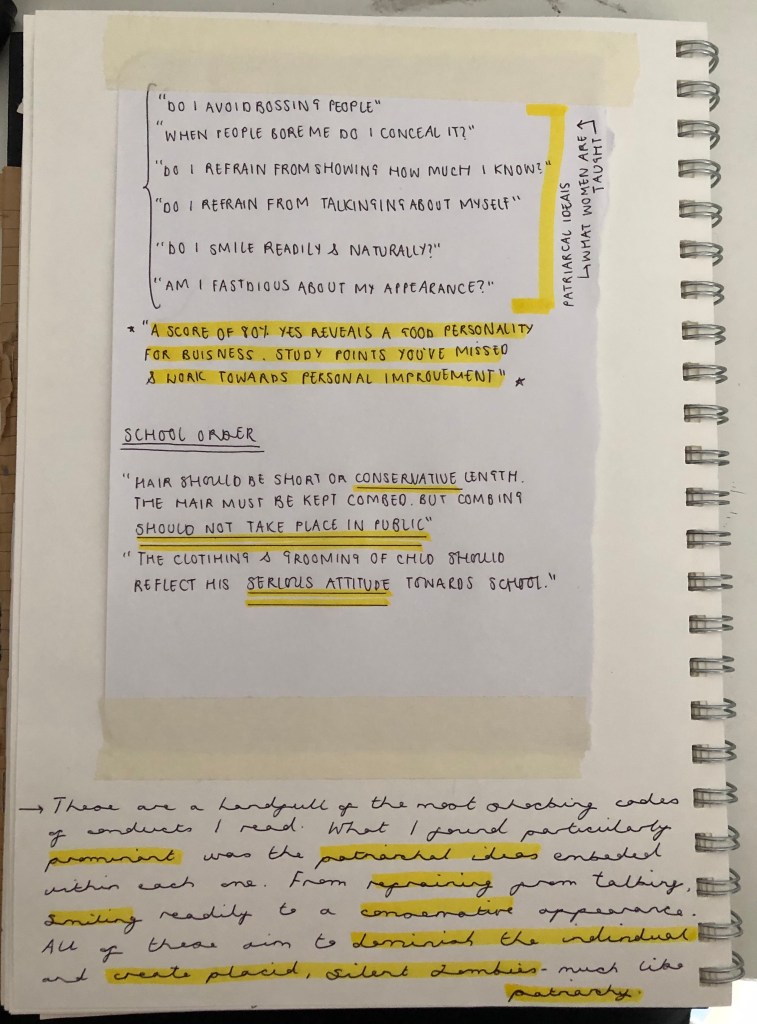 "DO I AVOID BOSSING PEOPLE"
"WHEN PEOPLE BORE ME DO I CONCEAL IT?"
"DO I REFRAIN FROM SHOWING HOW MUCH I KNOW?"
"DO I REFRAIN FROM TALKINGING ABOUT MYSELF"
"DO I SMILE READILY & NATURALLY?"
"AM I FASTDIOUS ABOUT MY APPEARANCE?"
PATRIARCAL IDEALS
↳ WHAT WOMEN ARE
TAUGHT
* "A SCORE OF 80% YES REVEALS A GOOD PERSONALITY
FOR BUISNESS. STUDY POINTS YOU'VE MISSED
& WORK TOWARDS PERSONAL IMPROVEMENT" *
SCHOOL ORDER
"HAIR SHOULD BE SHORT OR CONSERVATIVE LENGTH.
THE HAIR MUST BE KEPT COMBED. BUT COMBING
SHOULD NOT TAKE PLACE IN PUBLIC"
"THE CLOTHING & GROOMING OF CHLD SHOULD
REFLECT HIS SERIOUS ATTITUDE TOWARDS SCHOOL."
→ These are a handfull of the most shocking codes
of conducts I read. What I found particularly
prominant was the patriarhal ideas embeded
within each one. From refraining from talking,
smiling readily to a conservative appearance.
All of these aim to deminish the individual
and create placid, silent zombies - much like
patriarchy.